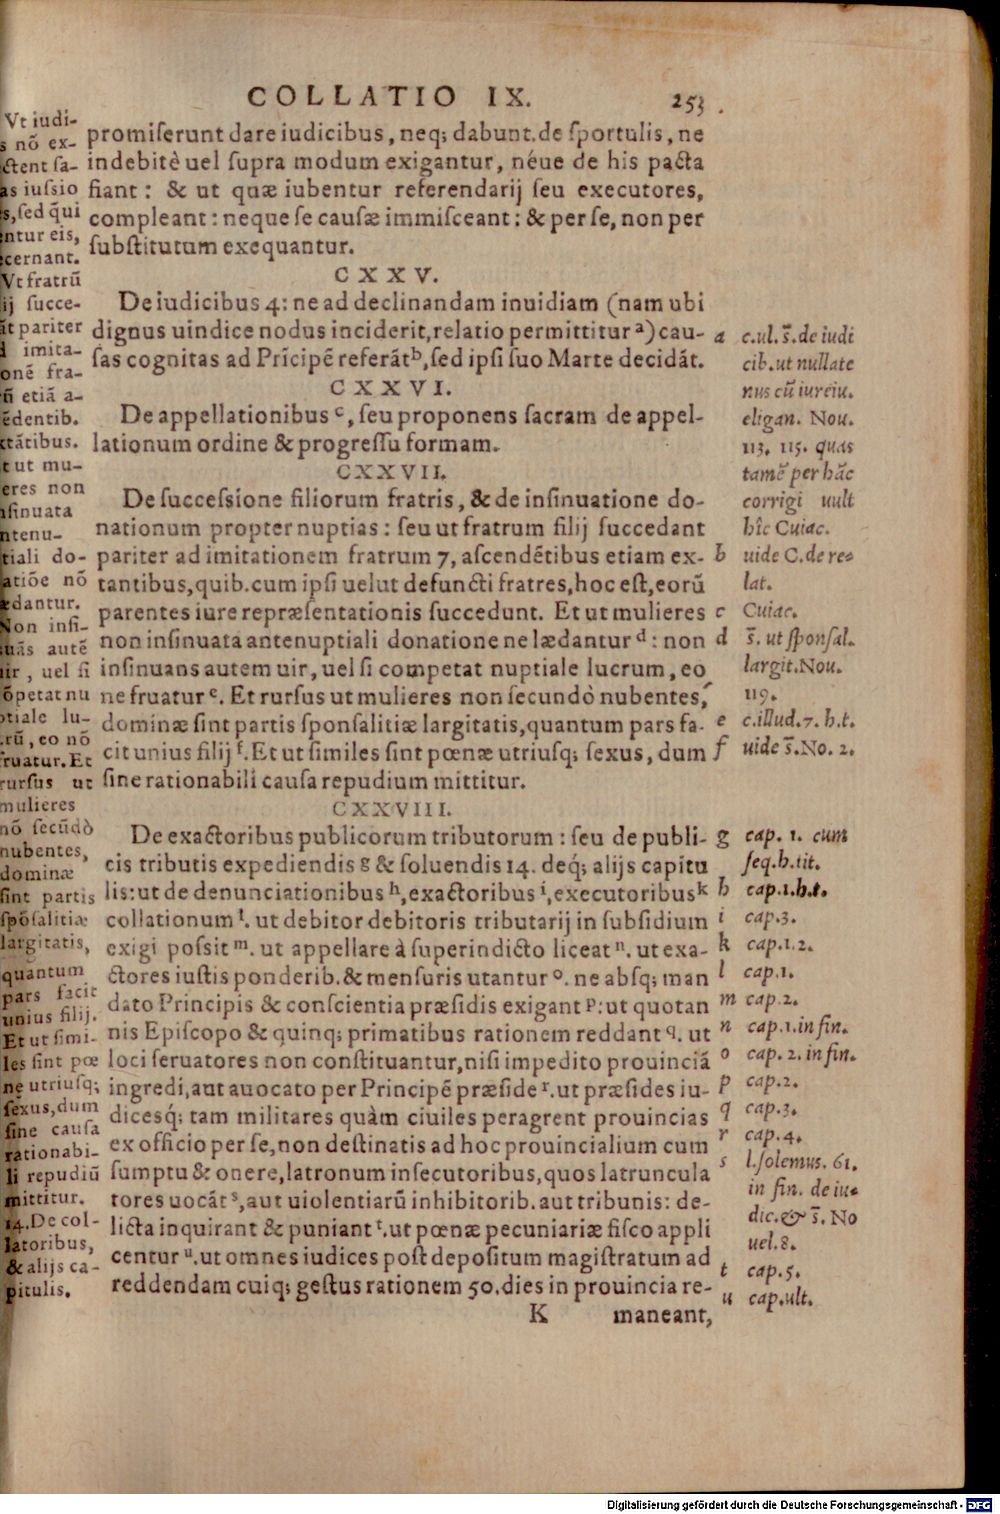 COLLATIO IX. 253
promiſerunt dare iudicibus, neq; dabunt. de ſportulis, ne
indebitè uel ſupra modum exigantur, néue de his pacta
fiant: & ut quæ iubentur referendarij ſeu executores,
compleant: neque ſe cauſæ immiſceant: & per ſe, non per
ſubſtitutum exequantur.
CXXV.
De iudicibus 4: ne ad declinandam inuidiam (nam ubi
dignus uindice nodus inciderit, relatio permittitur a) cau-
ſas cognitas ad Prīcipē referāt b, ſed ipſi ſuo Marte decidāt.
CXXVI.
De appellationibus c, ſeu proponens ſacram de appel-
lationum ordine & progreſſu formam.
CXXVII.
De ſucceſsione filiorum fratris, & de inſinuatione do-
nationum propter nuptias: ſeu ut fratrum filij ſuccedant
pariter ad imitationem fratrum 7, aſcendētibus etiam ex-
tantibus, quib. cum ipſi uelut defuncti fratres, hoc eſt, eorū
parentes iure repræſentationis ſuccedunt. Et ut mulieres
non inſinuata antenuptiali donatione ne lædantur d: non
inſinuans autem uir, uel ſi competat nuptiale lucrum, eo
ne fruatur e. Et rurſus ut mulieres non ſecundò nubentes,
dominæ ſint partis ſponſalitiæ largitatis, quantum pars fa-
cit unius filij f. Et ut ſimiles ſint pœnæ utriuſq; ſexus, dum
ſine rationabili cauſa repudium mittitur.
CXXVIII.
De exactoribus publicorum tributorum: ſeu de publi-
cis tributis expediendis g & ſoluendis 14. deq; alijs capitu
lis: ut de denunciationibus h, exactoribus i, executoribus k
collationum l. ut debitor debitoris tributarij in ſubſidium
exigi poſsit m. ut appellare à ſuperindicto liceat n. ut exa-
ctores iuſtis ponderib. & menſuris utantur o. ne abſq; man
dato Principis & conſcientia præſidis exigant p: ut quotan
nis Epiſcopo & quinq; primatibus rationem reddant q. ut
loci ſeruatores non conſtituantur, niſi impedito prouinciā
ingredi, aut auocato per Principē præſide r. ut præſides iu-
dicesq; tam militares quàm ciuiles peragrent prouincias
ex officio per ſe, non deſtinatis ad hoc prouincialium cum
ſumptu & onere, latronum inſecutoribus, quos latruncula
tores uocāt s, aut uiolentiarū inhibitorib. aut tribunis: de-
licta inquirant & puniant t. ut pœnæ pecuniariæ fiſco appli
centur u. ut omnes iudices poſt depoſitum magiſtratum ad
reddendam cuiq; geſtus rationem 50. dies in prouincia re-
K maneant,
Vt iudi-
s nō ex-
ctent ſa-
as iuſsio
s, ſed qui
ntur eis,
cernant.
Vt fratrū
ij ſucce-
āt pariter
imita-
onē fra-
etiā a-
ēdentib.
tātibus.
t ut mu-
eres non
ſinuata
ntenu-
tiali do-
atiōe nō
ædantur.
Non inſi-
uās autē
uir, uel ſi
ōpetat nu
ptiale lu-
rū, eo nō
fruatur. Et
rurſus ut
mulieres
nō ſecūdò
nubentes,
dominæ
ſint partis
ſpōſalitiæ
largitatis,
quantum
pars facit
unius filij.
Et ut ſimi-
les ſint pœ
næ utriuſq;
ſexus, dum
ſine cauſa
rationabi-
li repudiū
mittitur.
14. De col-
latoribus,
& alijs ca-
pitulis.
a c. ul. s̄. de iudi
cib. ut nullate
nus cū iureiu.
eligan. Nou.
113. 115. quas
tamē per hāc
corrigi uult
hîc Cuiac.
b uide C. de re-
lat.
c Cuiac.
d s̄. ut ſponſal.
largit. Nou.
119.
e c. illud. 7. h. t.
f uide s̄. No. 2.
g cap. 1. cum
ſeq. h. tit.
h cap. 1. h. t.
i cap. 3.
k cap. 1. 2.
l cap. 1.
m cap. 2.
n cap. 1. in fin.
o cap. 2. in fin.
p cap. 2.
q cap. 3.
r cap. 4.
s l. ſolemus. 61.
in fin. de iu-
dic. & s̄. No
uel. 8.
t cap. 5.
u cap. ult.
Digitalisierung gefördert durch die Deutsche Forschungsgemeinschaft - DFG